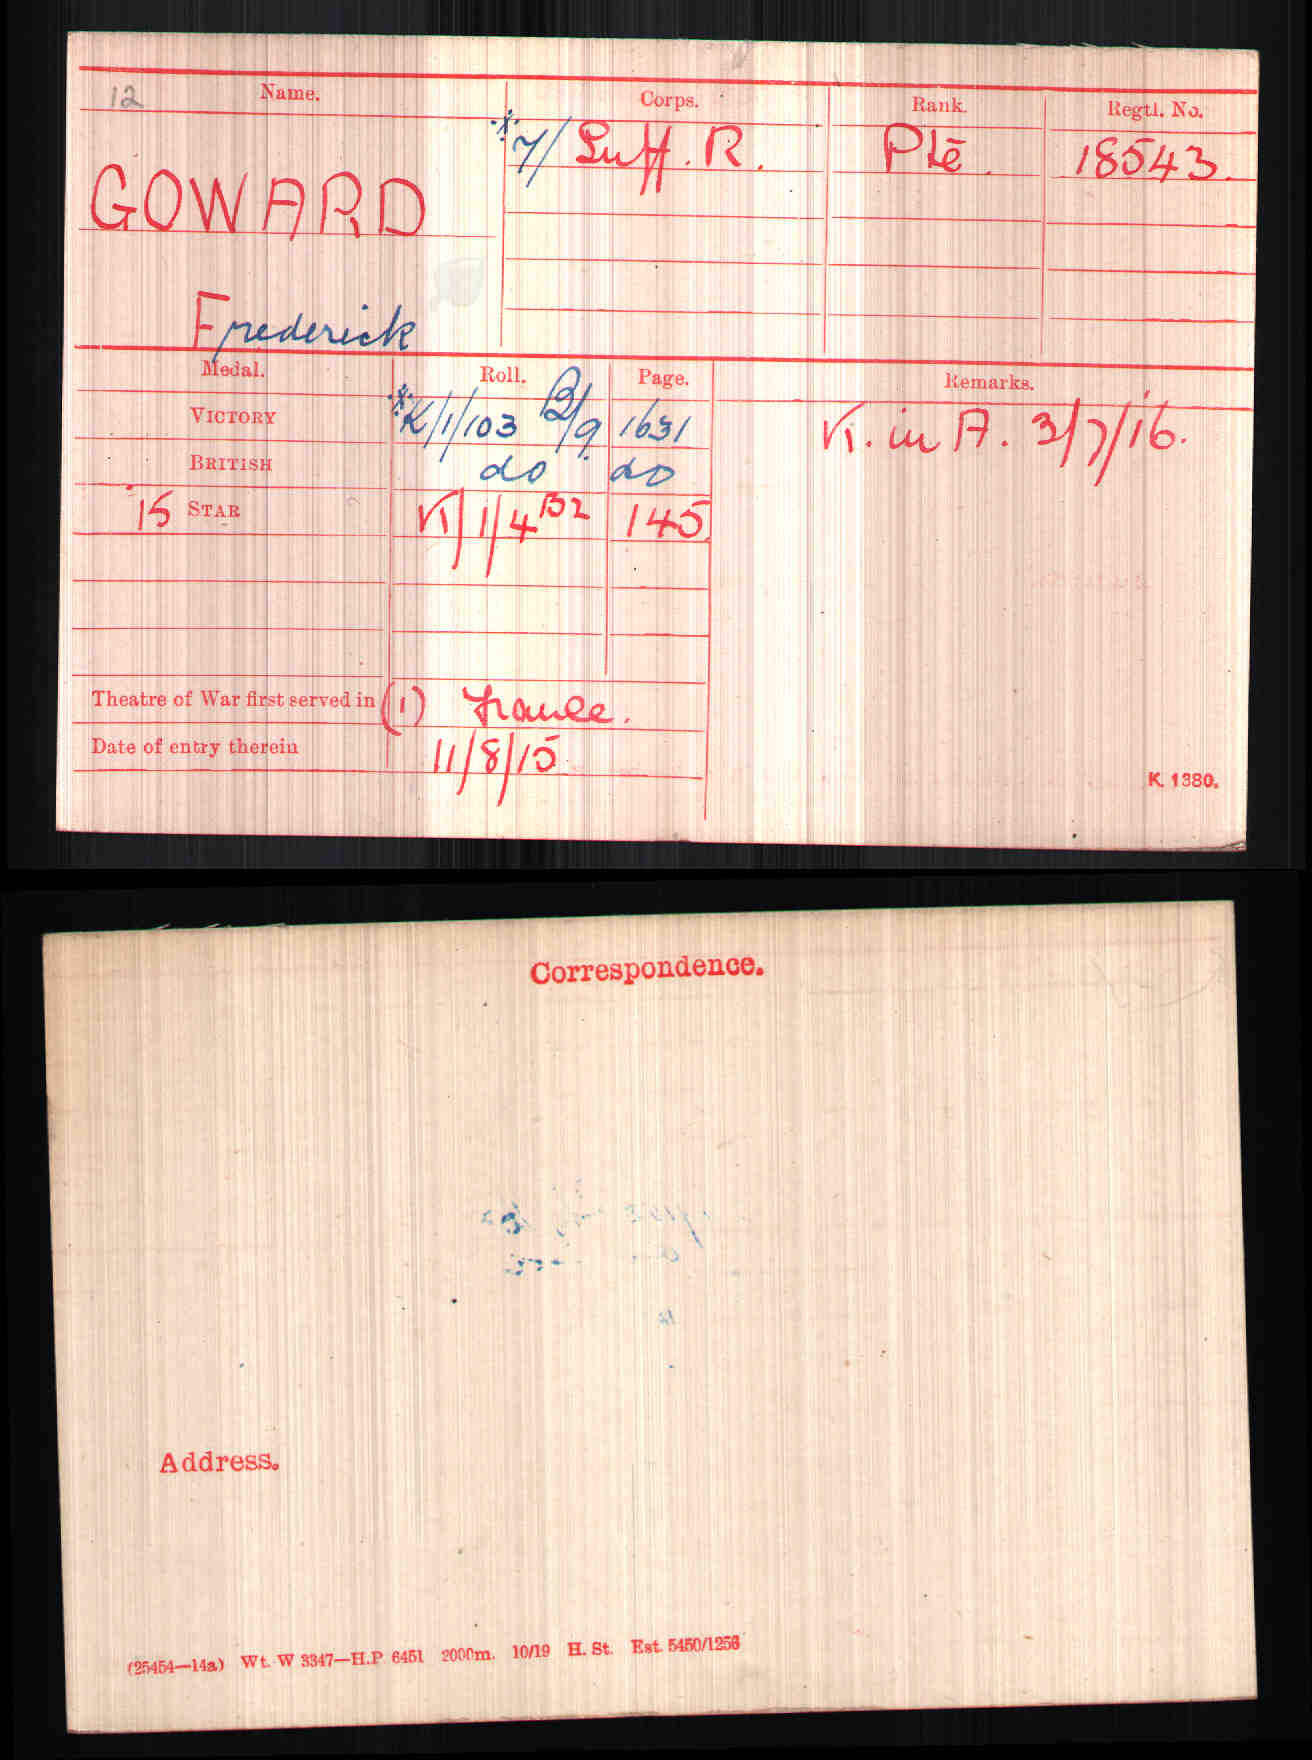 12 Name. Corps. Rank. Regtl. No.
* 7/ Suff. R. Pte. 18543.
GOWARD
Frederick
Medal. Roll. Page. Remarks.
VICTORY * K/1/103 B2/9. 1631 K. in A. 3/7/16.
BRITISH do do
'15 STAR K/1/4 B2 145.
Theatre of War first served in (1) France.
Date of entry therein 11/8/15
K. 1380.
Correspondence.
Address.
(25454—14a) Wt. W 3347—H.P. 6451 2000m. 10/19 H. St. Est. 5450/1256